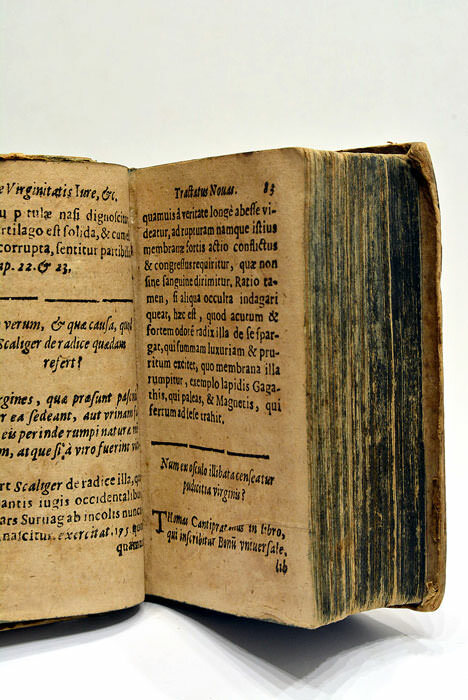 e Virginitatis Iure, &c.
tulæ nasi dignoscitur
rtilago est solida, & cum
corrupta, sentitur partibus
ap. 22. & 23.
verum, & quæ causa, quod
Scaliger de radice quædam
refert?
rgines, quæ præsunt
r ea sedeant, aut vrinam
eis perinde rumpi natura
m, atque si à viro fuerint
rt Scaliger de radice illa, qu
antis iugis occidentalib
ars Suruag ab incolis nunc
nascitur. exercitat. 175
quamuis
Tractatus Nouus. 83
quamuis à veritate longè abesse vi-
deatur, ad rupturam namque istius
membranæ fortis actio conflictus
& congressus requiritur, quæ non
sine sanguine dirimitur. Ratio ta-
men, si aliqua occulta indagari
queat, hæc est, quod acutum &
fortem odorē radix illa de se spar-
gat, qui summam luxuriam & pru-
ritum excitet, quo membrana illa
rumpitur, exemplo lapidis Gaga-
this, qui paleas, & Magnetis, qui
ferrum ad se se trahit.
Num ex osculo illibata censeatur
pudicitia virginis?
Thomas Cantipratanus in libro,
qui inscribitur Bonū vniuersale,
lib